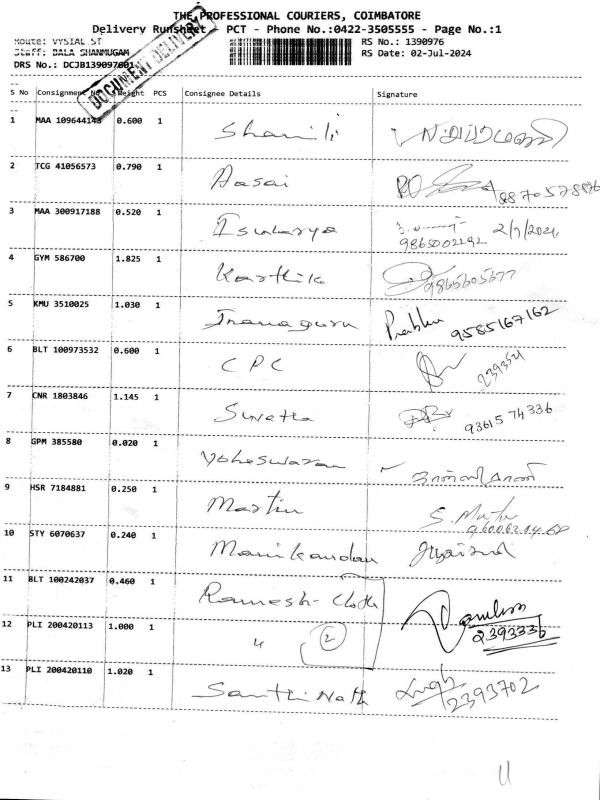 THE PROFESSIONAL COURIERS, COIMBATORE
Delivery Runsheet - PCT - Phone No.:0422-3505555 - Page No.:1
Route: VYSIAL ST
RS No.: 1390976
Staff: BALA SHANMUGAM
RS Date: 02-Jul-2024
DRS No.: DCJB139097601
DOCUMENT DELIVERY
S No Consignment No Weight PCS Consignee Details Signature
1 MAA 109644143 0.600 1 Shamili
2 TCG 41056573 0.790 1 Aasai
3 MAA 300917188 0.520 1 Isukarya 2/7/2024
9865002292
4 GYM 586700 1.825 1 Karthik 9865605677
5 KMU 3510025 1.030 1 Inanaguru Prabhu 9585167162
6 BLT 100973532 0.600 1 CPC
7 CNR 1803846 1.145 1 Suvetha 9361574336
8 GPM 385580 0.020 1 Yoheswaran
9 HSR 7184881 0.250 1 Martin S. Muthu
10 STY 6070637 0.240 1 Manikandan
11 BLT 100242037 0.460 1 Ramesh - Cloth
12 PLI 200420113 1.000 1 " 2 2393336
13 PLI 200420110 1.020 1 Santhi Nath 2393702